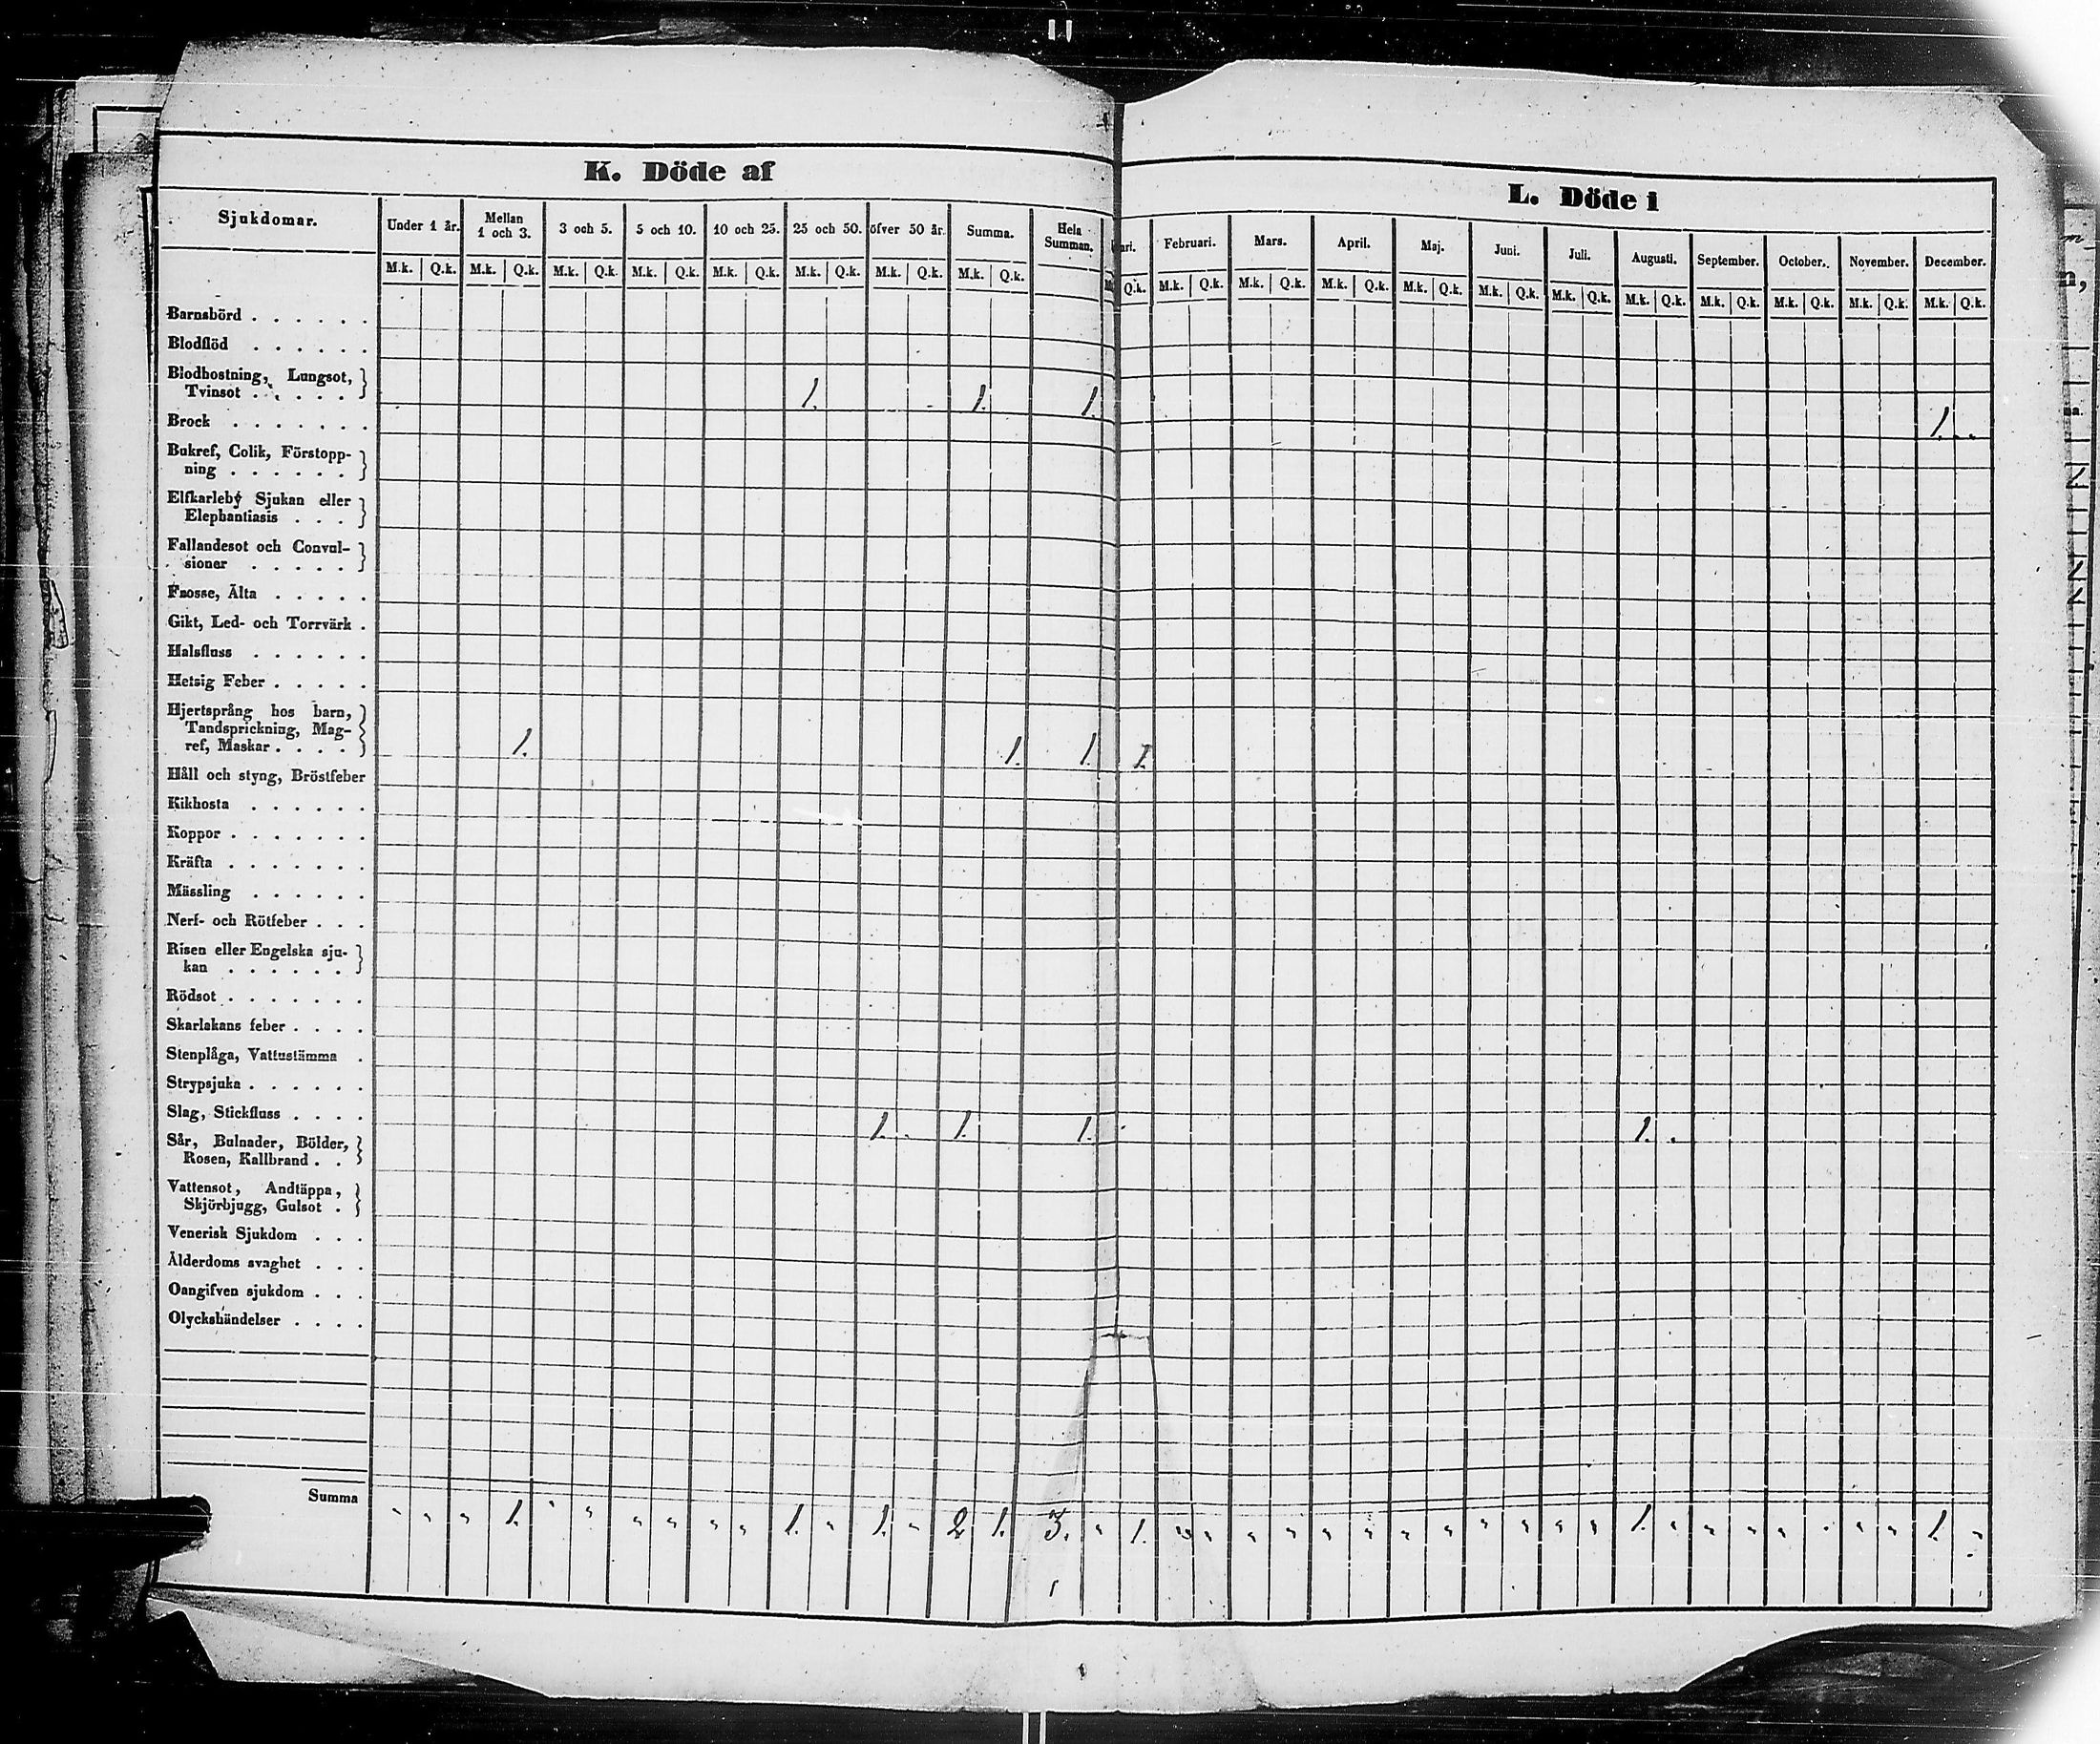 K. Döde af
L. Döde i
Sjukdomar. Under 1 år. Mellan 1 och 3. 3 och 5. 5 och 10. 10 och 25. 25 och 50. öfver 50 år. Summa. Hela Summan. ari. Februari. Mars. April. Maj. Juni. Juli. Augusti. September. October. November. December.
M.k. Q.k. M.k. Q.k. M.k. Q.k. M.k. Q.k. M.k. Q.k. M.k. Q.k. M.k. Q.k. M.k. Q.k. Q.k. M.k. Q.k. M.k. Q.k. M.k. Q.k. M.k. Q.k. M.k. Q.k. M.k. Q.k. M.k. Q.k. M.k. Q.k. M.k. Q.k. M.k. Q.k. M.k. Q.k.
Barnsbörd . . . . . .
Blodflöd . . . . . .
Blodhostning, Lungsot,
Tvinsot . . . . . . 1. 1. 1. 1.
Brock . . . . . . .
Bukref, Colik, Förstopp-
ning . . . . . .
Elfkarleby Sjukan eller
Elephantiasis . . .
Fallandesot och Convul-
sioner . . . . .
Frosse, Älta . . . . .
Gikt, Led- och Torrvärk .
Halsfluss . . . . . .
Hetsig Feber . . . . .
Hjertsprång hos barn,
Tandsprickning, Mag-
ref, Maskar . . . . 1. 1. 1. 1.
Håll och styng, Bröstfeber
Kikhosta . . . . . .
Koppor . . . . . . .
Kräfta . . . . . . .
Mässling . . . . . .
Nerf- och Rötfeber . . .
Risen eller Engelska sju-
kan . . . . . .
Rödsot . . . . . . .
Skarlakans feber . . . .
Stenplåga, Vattustämma .
Strypsjuka . . . . . .
Slag, Stickfluss . . . . 1. 1. 1. 1.
Sår, Bulnader, Bölder,
Rosen, Kallbrand . .
Vattensot, Andtäppa,
Skjörbjugg, Gulsot .
Venerisk Sjukdom . . .
Ålderdoms svaghet . . .
Oangifven sjukdom . . .
Olyckshändelser . . . .
Summa " " " 1. " " " " " " 1. " 1. " 2 1. 3. " 1. " " " " " " " " " " " " 1. " " " " " " " 1. "